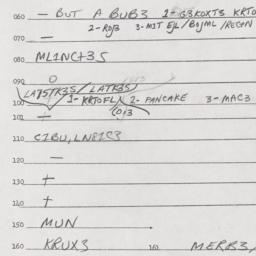 060 — BUT A BUB3 1- G3KOXT3 KRTO
2- ROJ3 3- MIT EJL/BOJML/RECHN
070 —
080 MLINC+35
090 O
LATS/K35/LATK35/
100 1- KRTOFL/ 2- PANCAKE 3- MAC3
110 C1BU, LNE1C3
120 —
130 +
140 +
150 MUN
160 KRUX3 160 MERB3/